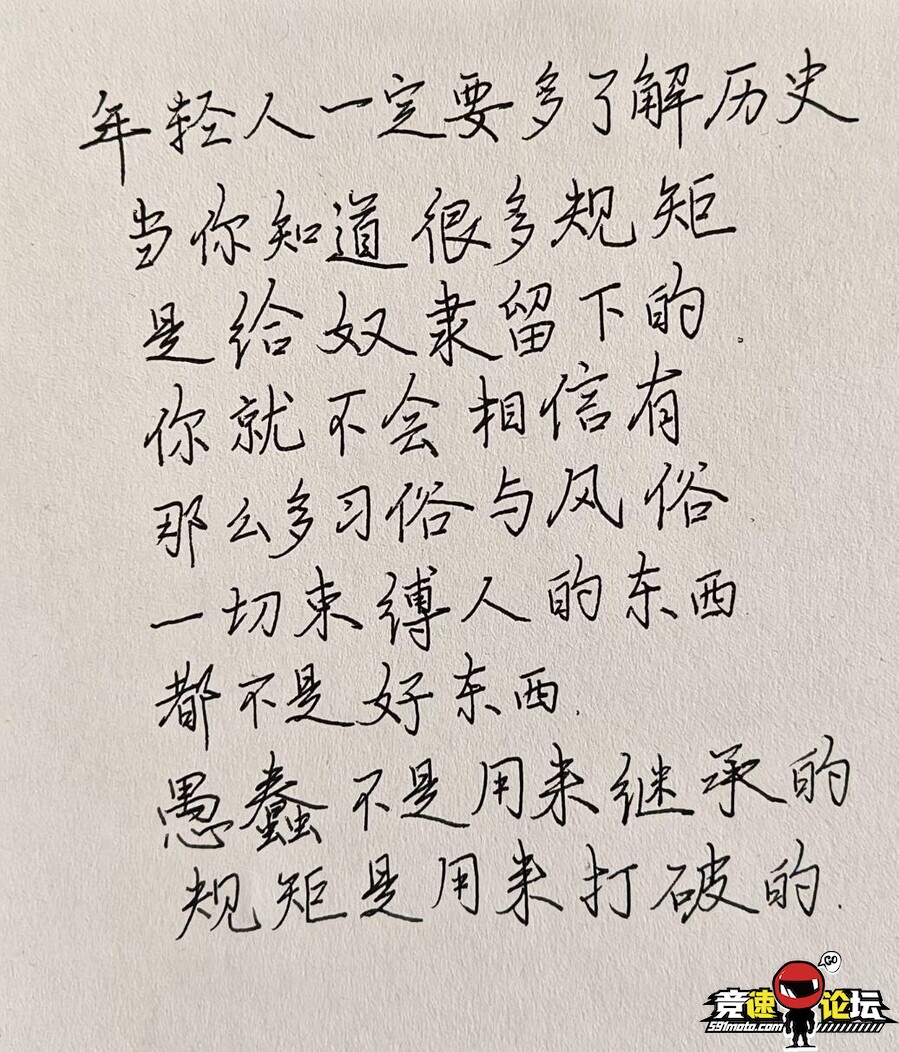 年轻人一定要多了解历史
当你知道很多规矩
是给奴隶留下的.
你就不会相信有
那么多习俗与风俗
一切束缚人的东西
都不是好东西.
愚蠢不是用来继承的
规矩是用来打破的.
GO
竞速论坛
591moto.com